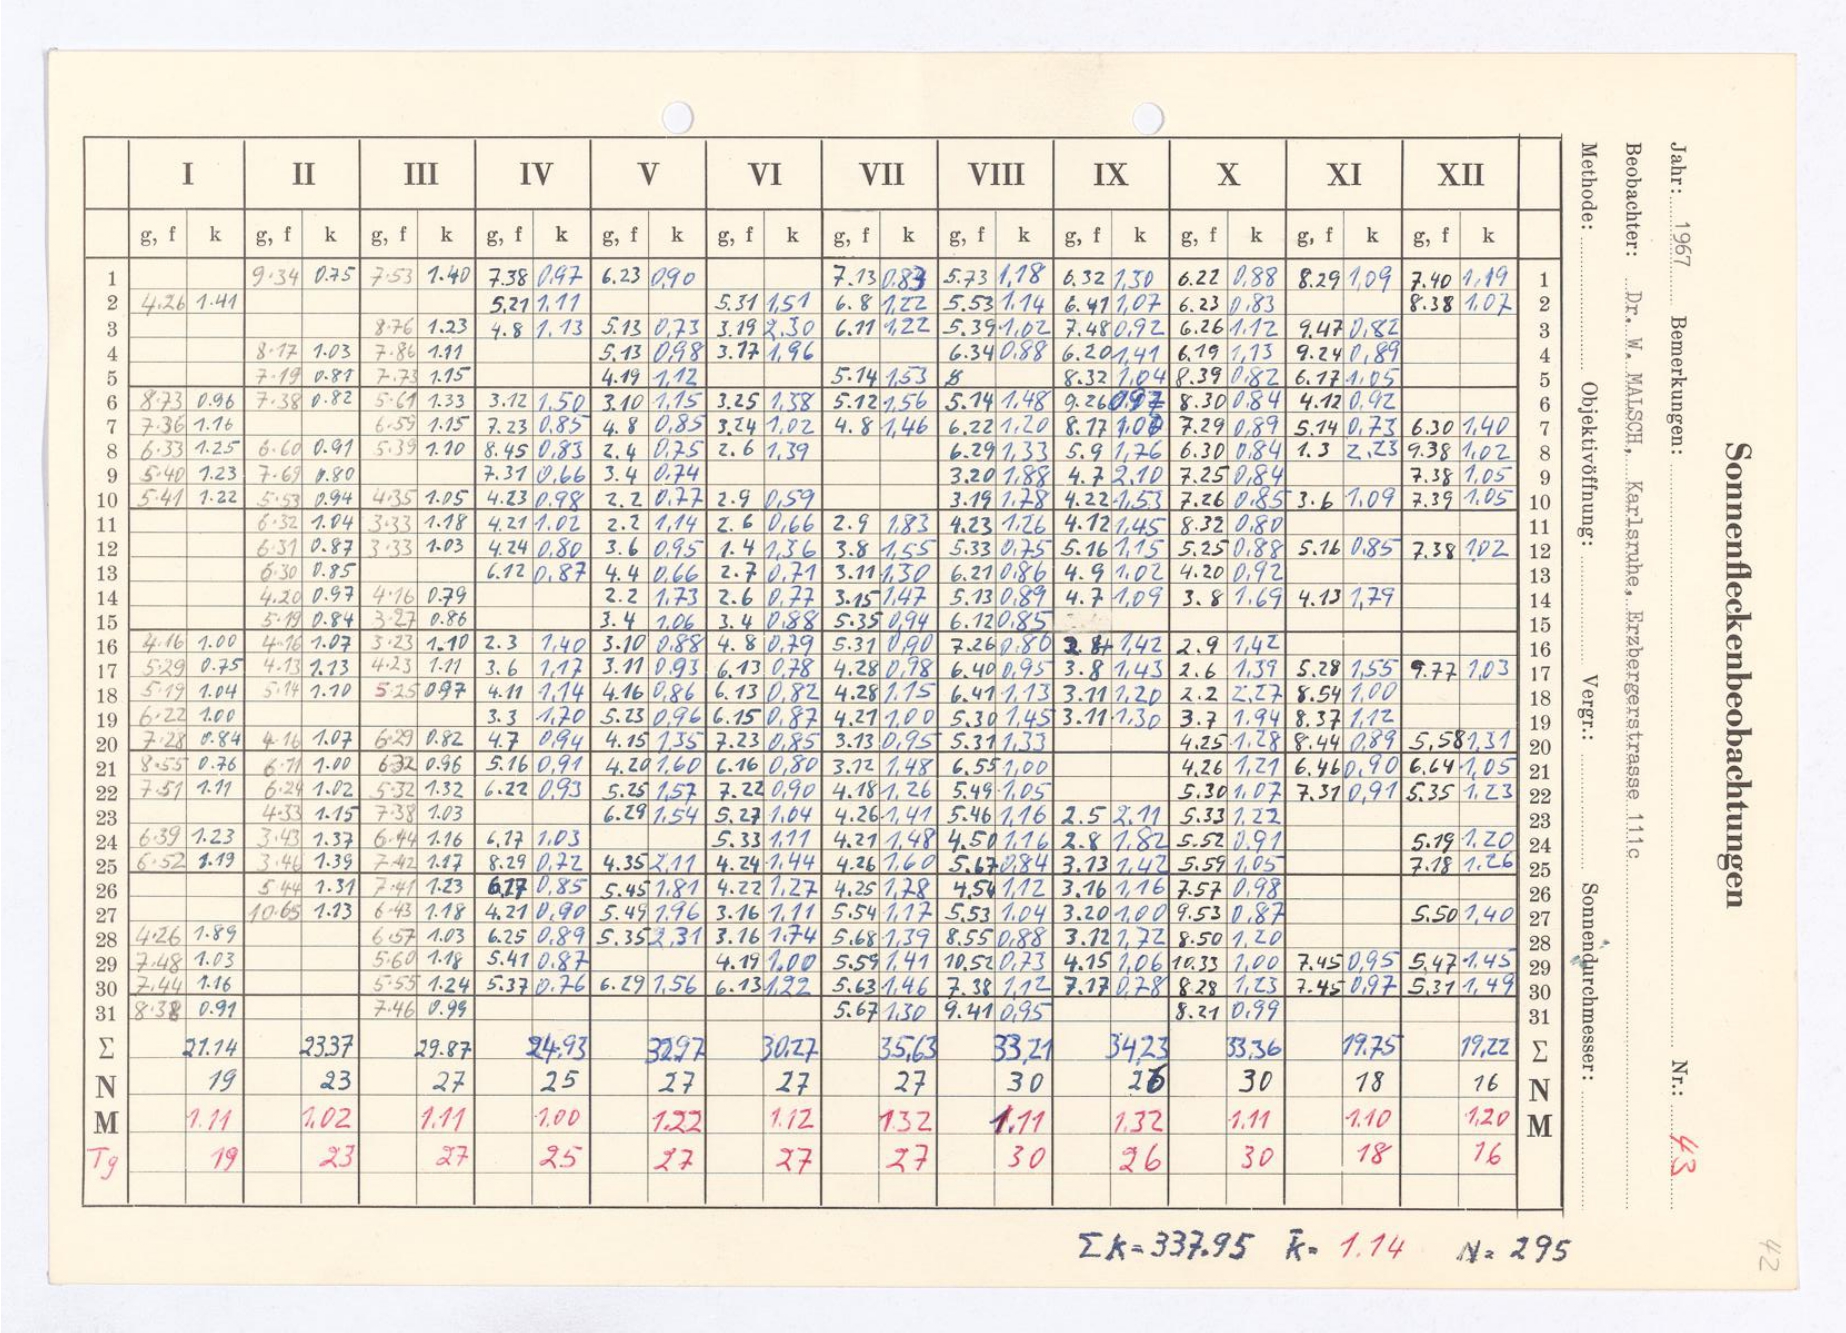 Sonnenfleckenbeobachtungen
Jahr: 1967 Bemerkungen: Nr.: 43
Beobachter: Dr. W. MALSCH, Karlsruhe, Erzbergerstrasse 111c
Methode: Objektivöffnung: Vergr.: Sonnendurchmesser:
I II III IV V VI VII VIII IX X XI XII
g, f k g, f k g, f k g, f k g, f k g, f k g, f k g, f k g, f k g, f k g, f k g, f k
1 9.34 0.75 7.53 1.40 7.38 0,97 6.23 0,90 7.13 0,83 5.73 1,18 6.32 1,30 6.22 0,88 8.29 1,09 7.40 1,19 1
2 4.26 1.41 5,21 1,11 5.31 1,51 6.8 1,22 5.53 1.14 6.41 1,07 6.23 0,83 8.38 1.07 2
3 8.76 1.23 4.8 1,13 5.13 0,73 3.19 2,30 6.11 1,22 5.39 1,02 7.48 0,92 6.26 1,12 9.47 0,82 3
4 8.17 1.03 7.86 1.11 5.13 0,98 3.17 1,96 6.34 0,88 6.20 1,41 6.19 1,13 9.24 0,89 4
5 7.19 0.81 7.73 1.15 4.19 1,12 5.14 1,53 8.32 1,04 8.39 0,82 6.17 1,05 5
6 8.73 0.96 7.38 0.82 5.61 1.33 3.12 1,50 3.10 1,15 3.25 1,38 5.12 1,56 5.14 1,48 9.26 0,97 8.30 0,84 4.12 0,92 6
7 7.36 1.16 6.59 1.15 7.23 0,85 4.8 0,85 3.24 1,02 4.8 1,46 6.22 1,20 8.17 7.29 0,89 5.14 0,73 6.30 1,40 7
8 6.33 1.25 6.60 0.91 5.39 1.10 8.45 0,83 2.4 0,75 2.6 1,39 6.29 1,33 5.9 1,76 6.30 0,84 1.3 2,23 9.38 1,02 8
9 5.40 1.23 7.69 0.80 7.31 0,66 3.4 0,74 3.20 1,88 4.7 2,10 7.25 0,84 7.38 1,05 9
10 5.41 1.22 5.53 0.94 4.35 1.05 4.23 0,98 2.2 0,77 2.9 0,59 3.19 1,78 4.22 1,53 7.26 0,85 3.6 1,09 7.39 1.05 10
11 6.32 1.04 3.33 1.18 4.21 1.02 2.2 1,14 2.6 0,66 2.9 1,83 4.23 1,26 4.12 1,45 8.32 0,80 11
12 6.31 0.87 3.33 1.03 4.24 0,80 3.6 0,95 1.4 1,36 3.8 1,55 5.33 0,75 5.16 1,15 5.25 0,88 5.16 0,85 7.38 1,02 12
13 6.30 0.85 6.12 0,87 4.4 0,66 2.7 0,71 3.11 1,30 6.21 0,86 4.9 1,02 4.20 0,92 13
14 4.20 0.97 4.16 0.79 2.2 1,73 2.6 0,77 3.15 1,47 5.13 0,89 4.7 1,09 3.8 1,69 4.13 1,79 14
15 5.19 0.84 3.27 0.86 3.4 1,06 3.4 0,88 5.35 0,94 6.12 0,85 15
16 4.16 1.00 4.16 1.07 3.23 1.10 2.3 1,40 3.10 0,88 4.8 0,79 5.31 0,90 7.26 0,80 1,42 2.9 1,42 16
17 5.29 0.75 4.13 1.13 4.23 1.11 3.6 1,17 3.11 0,93 6.13 0,78 4.28 0,98 6.40 0,95 3.8 1,43 2.6 1,39 5.28 1,55 9.77 1,03 17
18 5.19 1.04 5.14 1.10 5.25 0,97 4.11 1,14 4.16 0,86 6.13 0,82 4.28 1,15 6.41 1,13 3.11 1,20 2.2 2,27 8.54 1,00 18
19 6.22 1.00 3.3 1,70 5.23 0,96 6.15 0,87 4.21 1,00 5.30 1,45 3.11 1,30 3.7 1,94 8.37 1,12 19
20 7.28 0.84 4.16 1.07 6.29 0.82 4.7 0,94 4.15 1,35 7.23 0,85 3.13 0,95 5.31 1,33 4.25 1,28 8.44 0,89 5,58 1,31 20
21 8.55 0.76 6.11 1.00 6.32 0.96 5.16 0,91 4.20 1,60 6.16 0,80 3.12 1,48 6.55 1,00 4.26 1,21 6.46 0,90 6.64 1,05 21
22 7.51 1.11 6.24 1.02 5.32 1.32 6.22 0,93 5.25 1,57 7.22 0,90 4.18 1,26 5.49 1,05 5.30 1,07 7.31 0,91 5.35 1,23 22
23 4.33 1.15 7.38 1.03 6.29 1,54 5.27 1,04 4.26 1,41 5.46 1,16 2.5 2,11 5.33 1,22 23
24 6.39 1.23 3.43 1.37 6.44 1.16 6,17 1,03 5.33 1,11 4.21 1,48 4.50 1,16 2.8 1,82 5.52 0,91 5.19 1,20 24
25 6.52 1.19 3.46 1.39 7.42 1.17 8.29 0,72 4.35 2,11 4.24 1,44 4.26 1,60 5.67 0,84 3.13 1,42 5.59 1,05 7.18 1,26 25
26 5.44 1.31 7.41 1.23 6.17 0,85 5.45 1,81 4.22 1,27 4.25 1,78 4.54 1,12 3.16 1,16 7.57 0,98 26
27 10.65 1.13 6.43 1.18 4.21 0,90 5.49 1,96 3.16 1,11 5.54 1,17 5.53 1,04 3.20 1,00 9.53 0,87 5.50 1,40 27
28 4.26 1.89 6.57 1.03 6.25 0,89 5.35 2,31 3.16 1,74 5.68 1,39 8.55 0,88 3.12 1,72 8.50 1,20 28
29 7.48 1.03 5.60 1.18 5.41 0,87 4.19 1,00 5.59 1,41 10.52 0,73 4.15 1,06 10.33 1,00 7.45 0,95 5.47 1,45 29
30 7.44 1.16 5.55 1.24 5.37 0,76 6.29 1,56 6.13 1,22 5.63 1,46 7.38 1,12 7.17 0,78 8.28 1,23 7.45 0,97 5.31 1,49 30
31 8.38 0.91 7.46 0.99 5.67 1,30 9.41 0,95 8.21 0,99 31
Σ 21.14 23.37 29.87 24,93 32,97 30,27 35,63 33,21 34,23 33,36 19.75 19,22 Σ
N 19 23 27 25 27 27 27 30 26 30 18 16 N
M 1.11 1,02 1.11 1.00 1.22 1.12 1.32 1.11 1.32 1.11 1.10 1,20 M
Tg 19 23 27 25 27 27 27 30 26 30 18 16
Σk=337.95 k̄= 1.14 N= 295
42